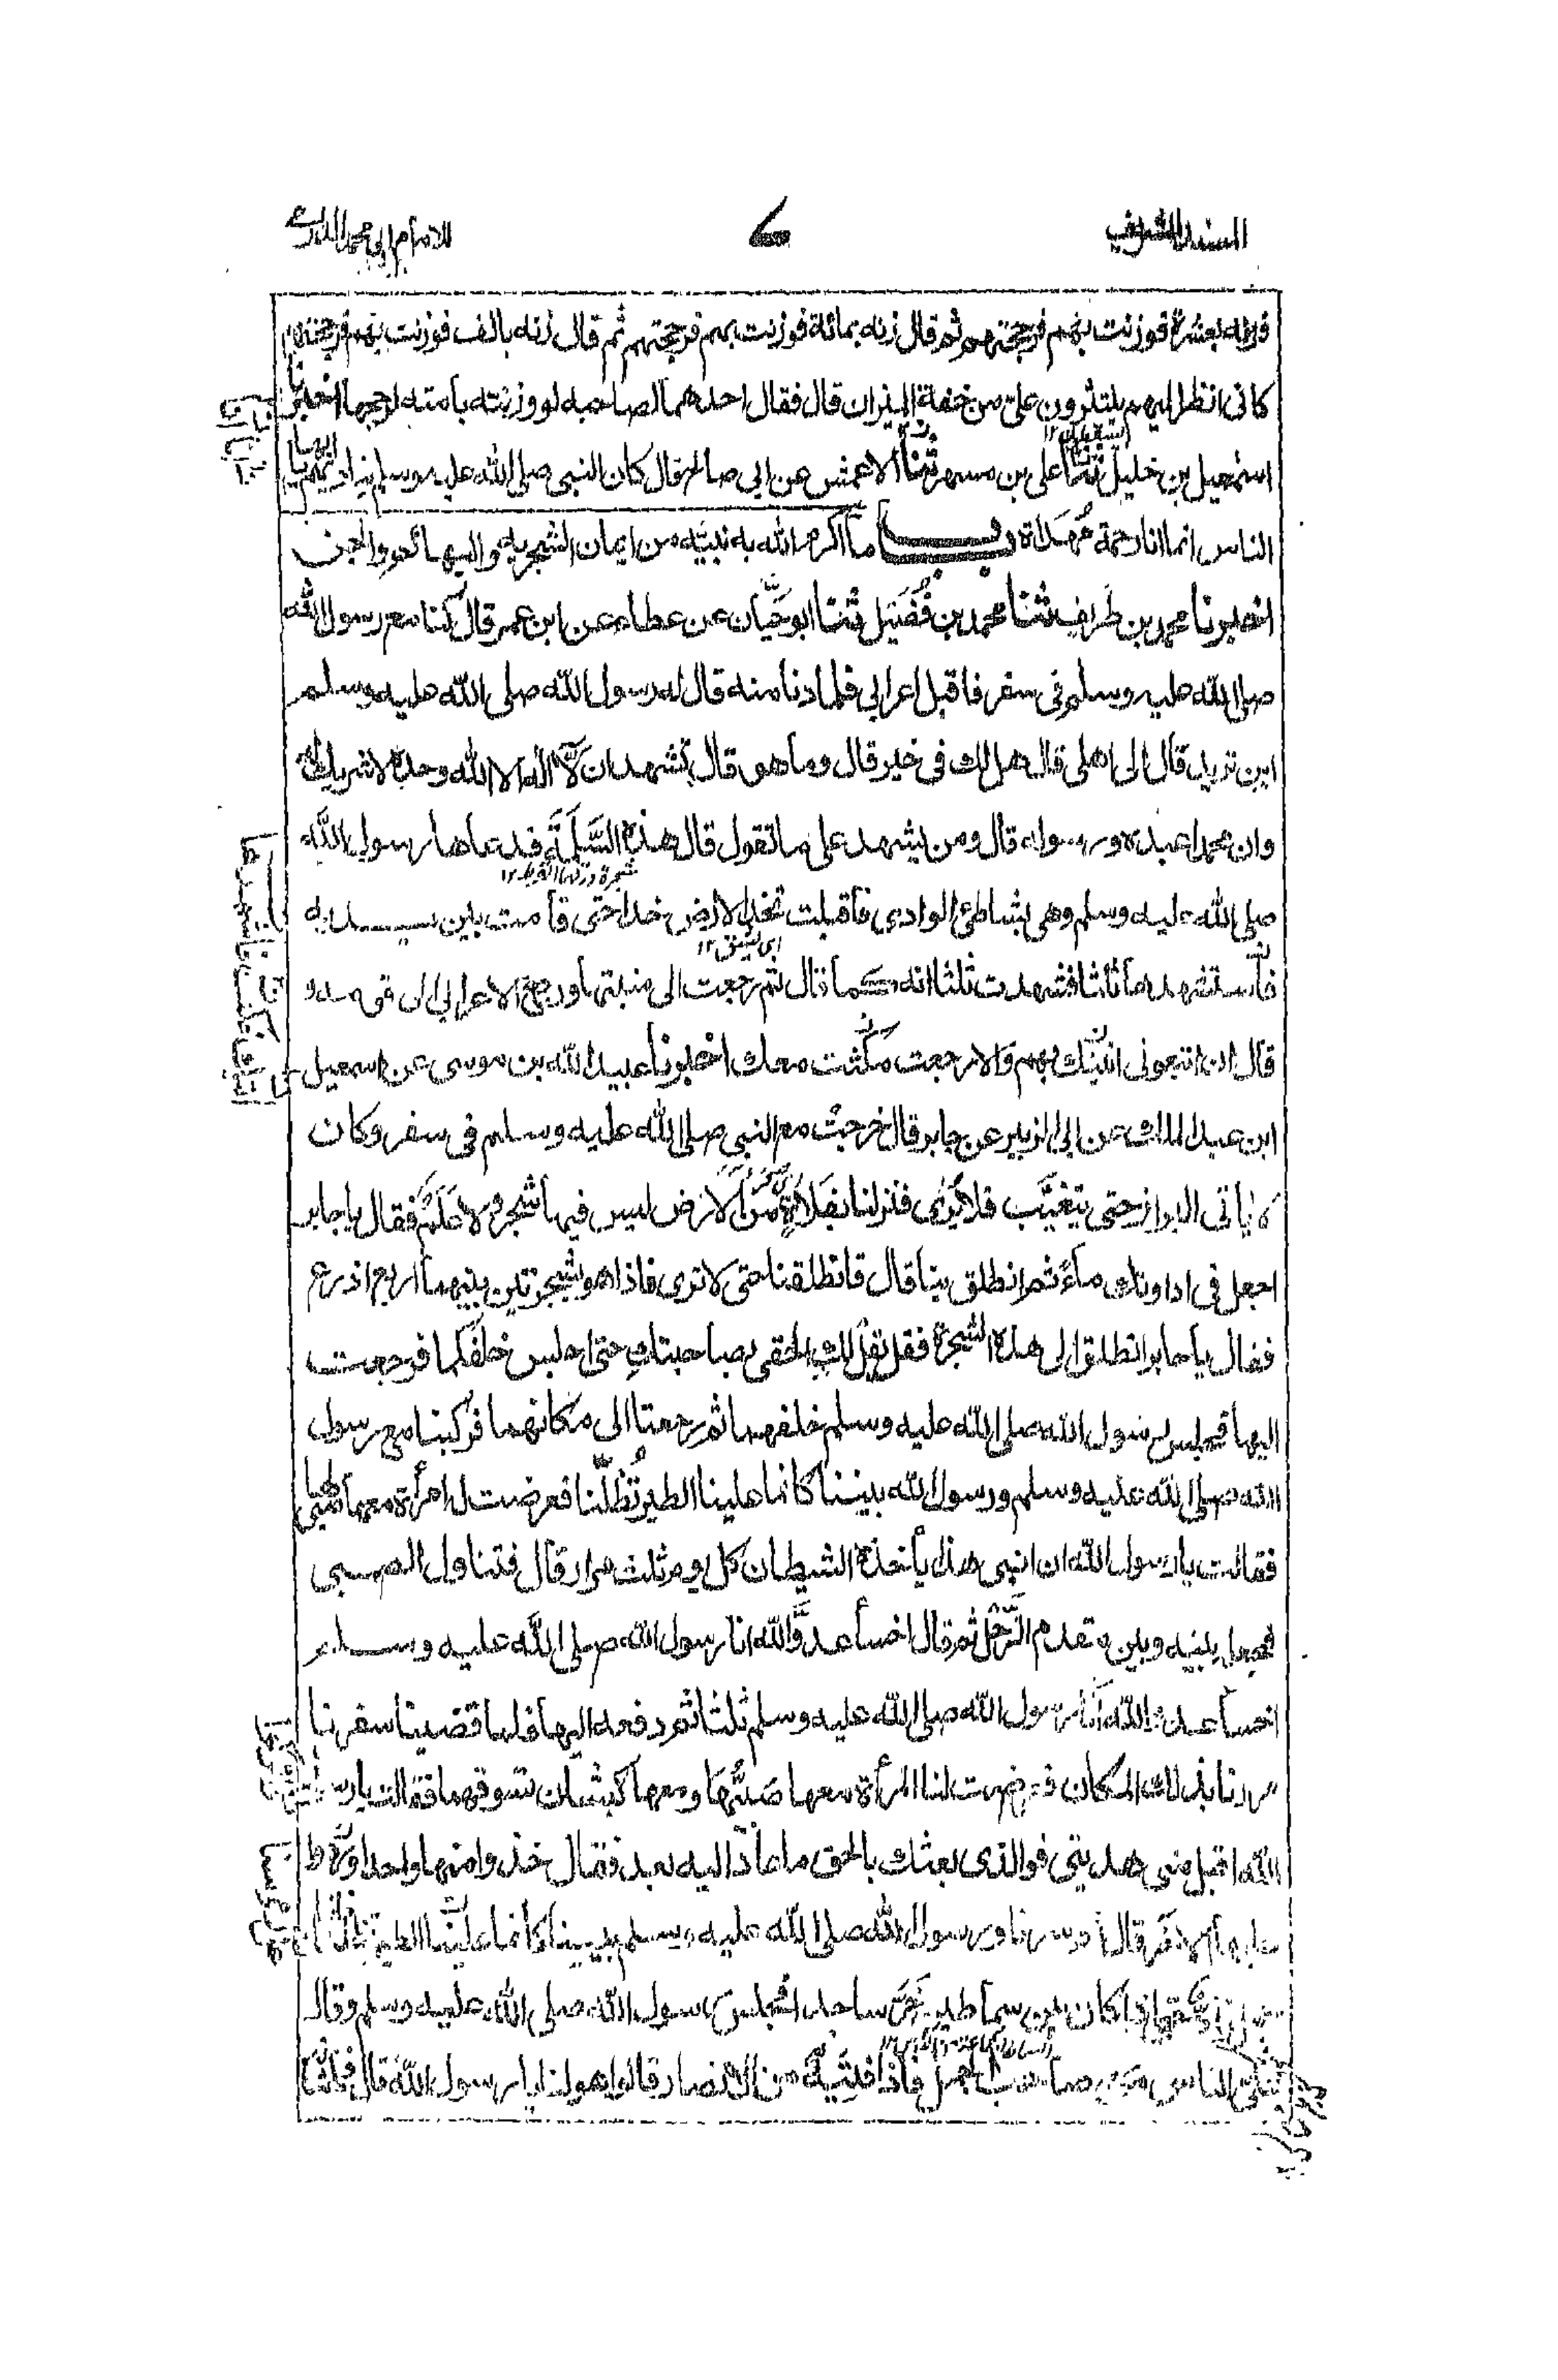 المسند الشريف
٧
للامام ابي محمد الدارمي
فزنه بعشرة فوزنت بهم فرجحتهم ثم قال زنه بمائة فوزنت بهم فرجحتهم ثم قال زنه بالف فوزنت بهم فرجحتهم
كاني انظر اليهم ينتثرون علي من خفة الميزان قال فقال احدهما لصاحبه لو وزنته بأمته لرجحها اخبرنا
اسمعيل بن خليل ثنا علي بن مسهر ثنا الاعمش عن ابي صالح قال كان النبي صلى الله عليه وسلم يناديهم يا ايها
الناس انما انا رحمة مُهداة باب ما اكرم الله به نبيّه من ايمان الشجر به والبهائم والجن
اخبرنا محمد بن طريف ثنا محمد بن فُضَيل ثنا ابو حَيَّان عن عطاء عن ابن عمر قال كنا مع رسول الله
صلى الله عليه وسلم في سفر فاقبل اعرابي فلما دنا منه قال له رسول الله صلى الله عليه وسلم
اين تريد قال الى اهلي قال هل لك في خير قال وما هو قال تشهد ان لا اله الا الله وحده لا شريك له
وان محمدا عبده ورسوله قال ومن يشهد على ما تقول قال هذه السَّلَمَة فدعاها رسول الله
شجرة ورقها القرظ ١٢
صلى الله عليه وسلم وهي بشاطئ الوادي فأقبلت تخد الارض خدا حتى قامت بين يديه
اي تشق ١٢
فاستشهدها ثلثا فشهدت ثلثا انه كما قال ثم رجعت الى منبتها ورجع الاعرابي الى قومه و
قال ان اتبعوني اتيتك بهم والا رجعت مكثت معك اخبرنا عبيد الله بن موسى عن اسمعيل
ابن عبد الملك عن ابي الزبير عن جابر قال خرجت مع النبي صلى الله عليه وسلم في سفر وكان
لا يأتي البراز حتى يتغيّب فلا يُرى فنزلنا بفلاة من الارض ليس فيها شجرة ولا عَلَم فقال يا جابر
اجعل في اداوتك ماءً ثم انطلق بنا قال فانطلقنا حتى لا نرى فاذا هو بشجرتين بينهما اربع اذرع
فقال يا جابر انطلق الى هذه الشجرة فقل يقل لك الحقي بصاحبتك حتى اجلس خلفكما فرجعت
اليها فجلس رسول الله صلى الله عليه وسلم خلفهما ثم رجعتا الى مكانهما فركبنا مع رسول
الله صلى الله عليه وسلم ورسول الله بيننا كانما علينا الطير تُظلّنا فعرضت له امرأة معها صبي لها
فقالت يا رسول الله ان ابني هذا يأخذه الشيطان كل يوم ثلث مرار قال فتناول الصبي
فجعله بينه وبين مقدم الرَّحْل ثم قال اخسأ عدوَّ الله انا رسول الله صلى الله عليه وسلم
اخسأ عدو الله أنا رسول الله صلى الله عليه وسلم ثلثا ثم دفعه اليها فلما قضينا سفرنا
مررنا بذلك المكان فعرضت لنا المرأة معها صبيُّها ومعها كبشان تسوقهما فقالت يا رسول
الله اقبل مني هديتي فوالذي بعثك بالحق ما عاد اليه بعد فقال خذوا منها واحدا وردّوا
عليها الاخر قال ثم سرنا ورسول الله صلى الله عليه وسلم بيننا كأنما علينا الطير تظلنا
كان بين سماطين خرّ ساجدا فجلس رسول الله صلى الله عليه وسلم وقال
عليّ الناس من صاحب الجمل فاذا فتية من الانصار قالوا هو لنا يا رسول الله قال فما شأنه